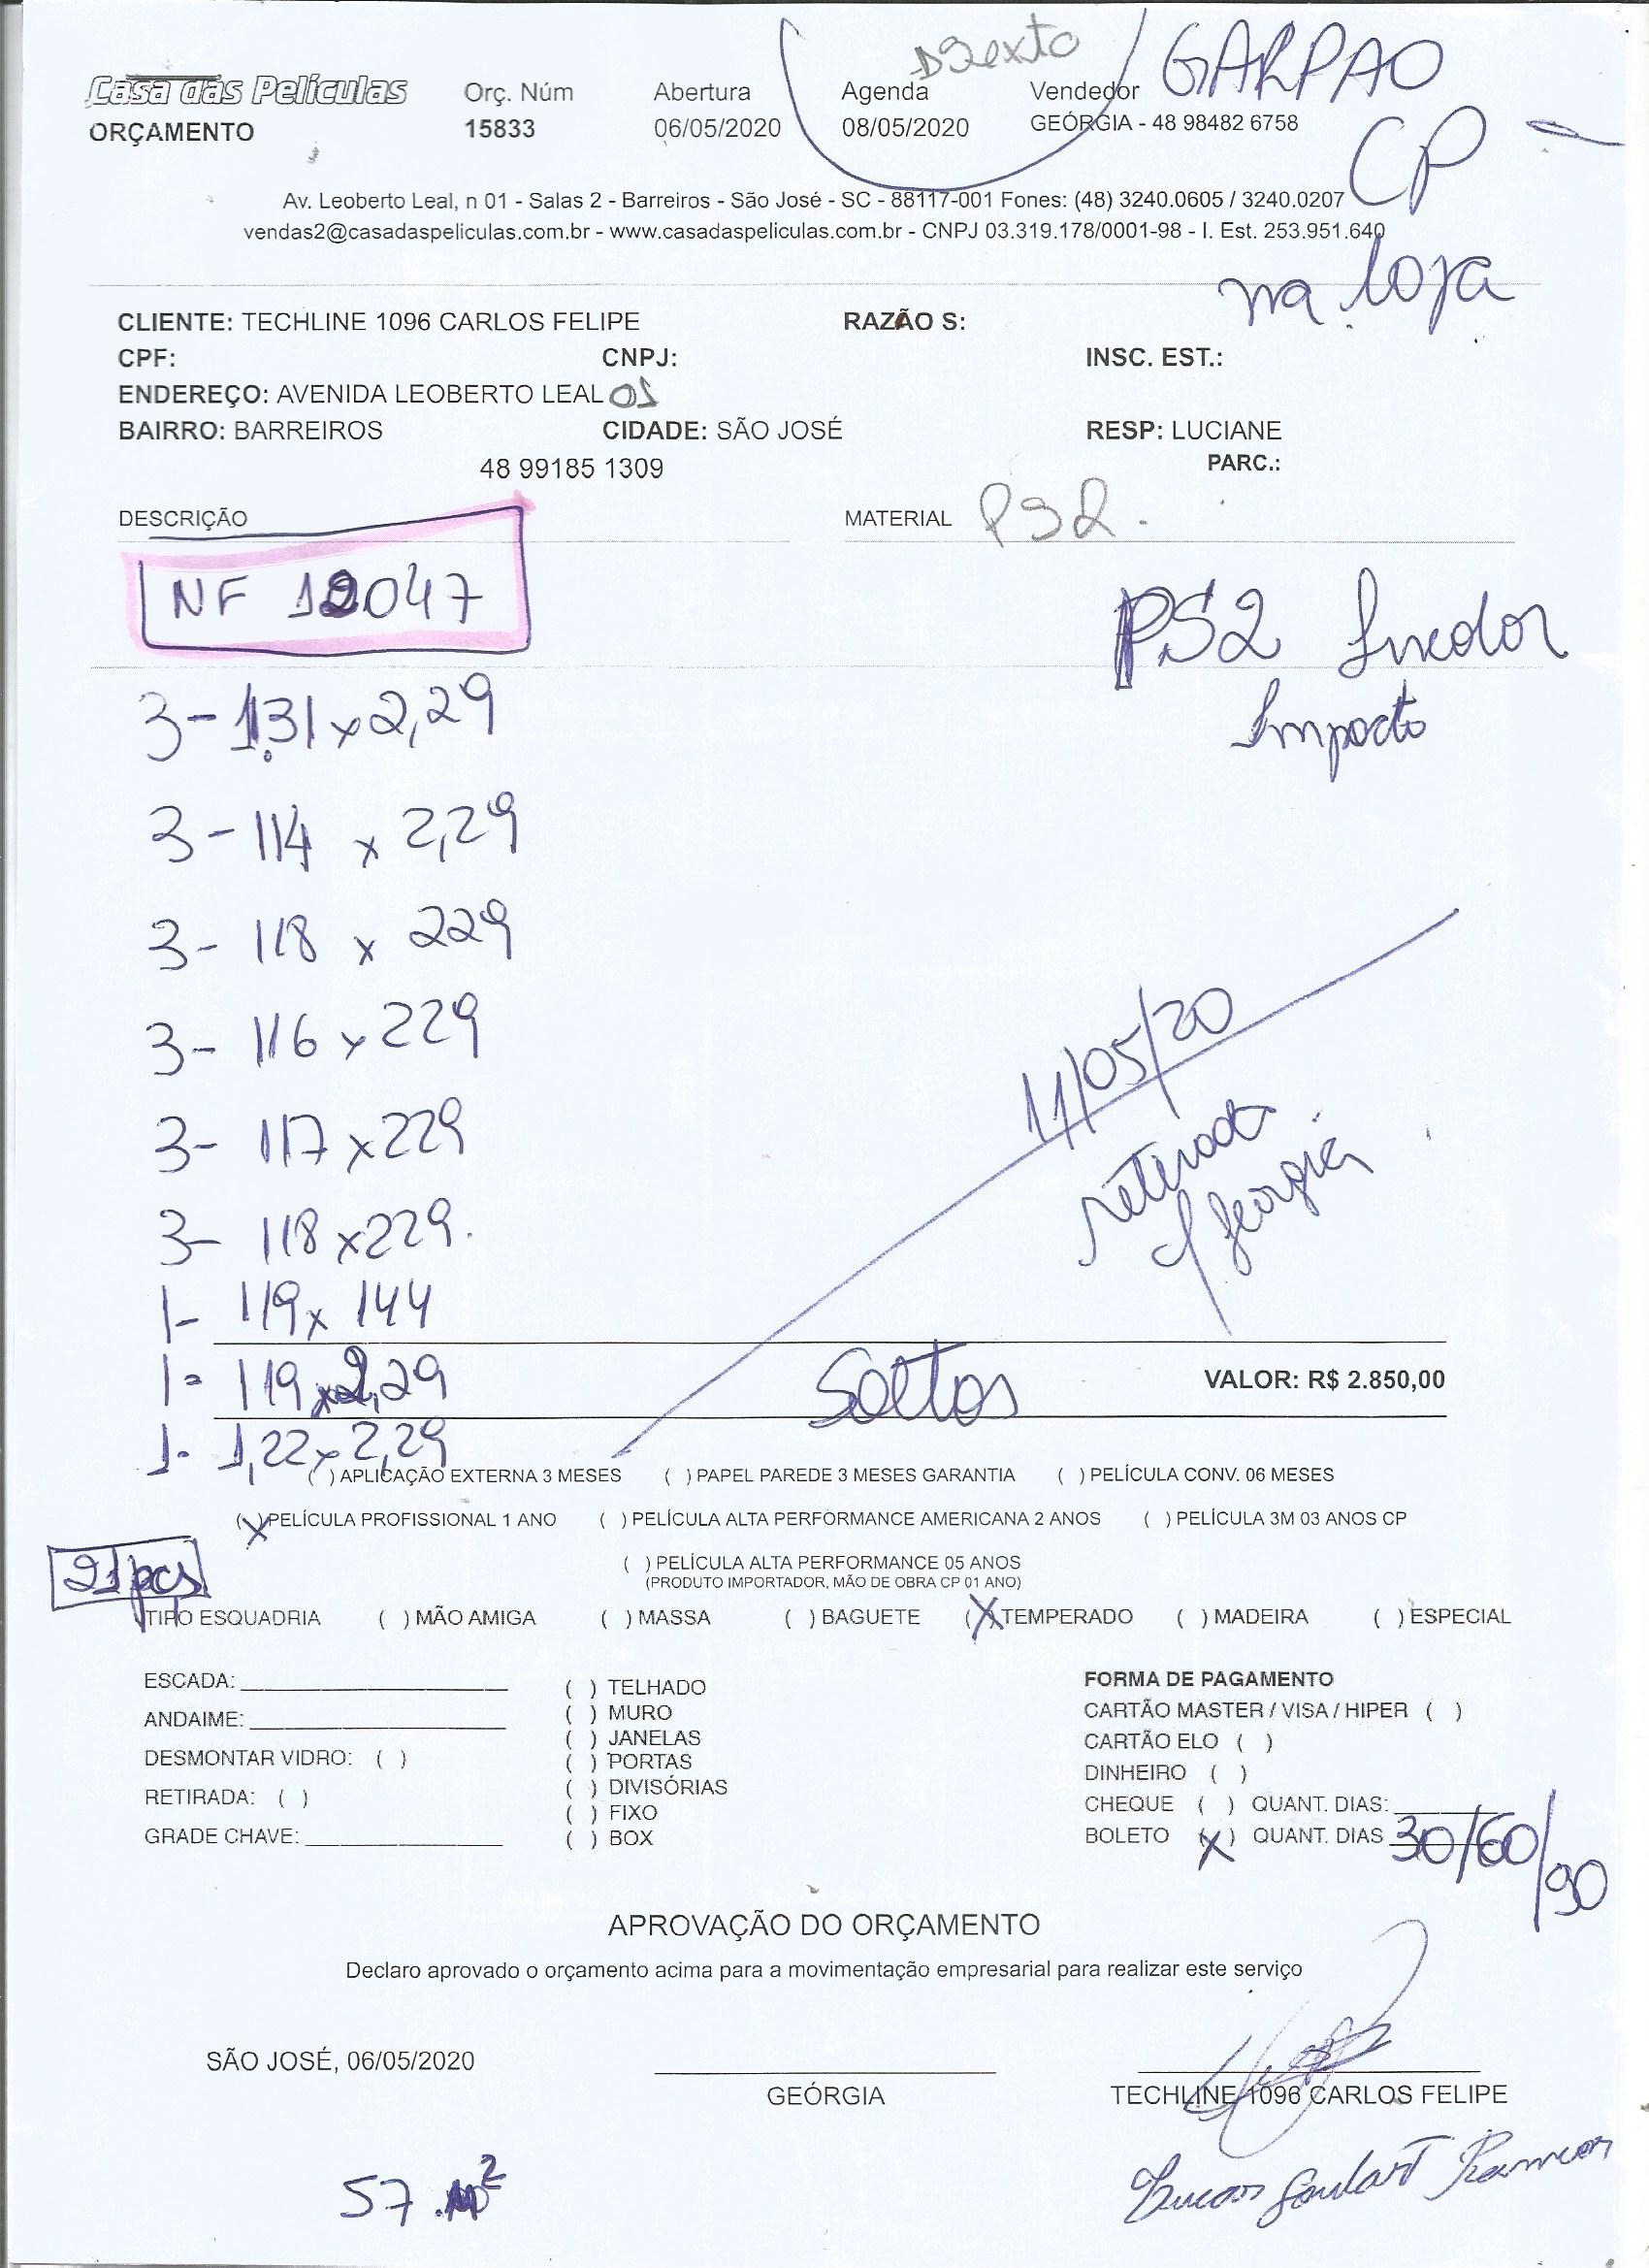 D Sexto
GARPAO
Casa das Películas Orç. Núm Abertura Agenda Vendedor
ORÇAMENTO 15833 06/05/2020 08/05/2020 GEÓRGIA - 48 98482 6758
CP -
Av. Leoberto Leal, n 01 - Salas 2 - Barreiros - São José - SC - 88117-001 Fones: (48) 3240.0605 / 3240.0207
vendas2@casadaspeliculas.com.br - www.casadaspeliculas.com.br - CNPJ 03.319.178/0001-98 - I. Est. 253.951.640
na loja
CLIENTE: TECHLINE 1096 CARLOS FELIPE RAZÃO S:
CPF: CNPJ: INSC. EST.:
ENDEREÇO: AVENIDA LEOBERTO LEAL 01
BAIRRO: BARREIROS CIDADE: SÃO JOSÉ RESP: LUCIANE
48 99185 1309 PARC.:
DESCRIÇÃO MATERIAL PS2.
NF 12047
PS2 Incolor
Impacto
3- 131 x 2,29
3- 114 x 2,29
3- 118 x 229
3- 116 x 229
3- 117 x 229
3- 118 x 229.
11/05/20
retirada
c/ Georgia
1- 119 x 144
1- 119 x 2,29 Soltos VALOR: R$ 2.850,00
1- 1,22 x 2,29
( ) APLICAÇÃO EXTERNA 3 MESES ( ) PAPEL PAREDE 3 MESES GARANTIA ( ) PELÍCULA CONV. 06 MESES
(X) PELÍCULA PROFISSIONAL 1 ANO ( ) PELÍCULA ALTA PERFORMANCE AMERICANA 2 ANOS ( ) PELÍCULA 3M 03 ANOS CP
21 pcs
( ) PELÍCULA ALTA PERFORMANCE 05 ANOS
(PRODUTO IMPORTADOR, MÃO DE OBRA CP 01 ANO)
TIPO ESQUADRIA ( ) MÃO AMIGA ( ) MASSA ( ) BAGUETE (X) TEMPERADO ( ) MADEIRA ( ) ESPECIAL
ESCADA:
ANDAIME:
DESMONTAR VIDRO: ( )
RETIRADA: ( )
GRADE CHAVE:
( ) TELHADO
( ) MURO
( ) JANELAS
( ) PORTAS
( ) DIVISÓRIAS
( ) FIXO
( ) BOX
FORMA DE PAGAMENTO
CARTÃO MASTER / VISA / HIPER ( )
CARTÃO ELO ( )
DINHEIRO ( )
CHEQUE ( ) QUANT. DIAS:
BOLETO (X) QUANT. DIAS 30/60/90
APROVAÇÃO DO ORÇAMENTO
Declaro aprovado o orçamento acima para a movimentação empresarial para realizar este serviço
SÃO JOSÉ, 06/05/2020
GEÓRGIA TECHLINE 1096 CARLOS FELIPE
57 M²
Goulart